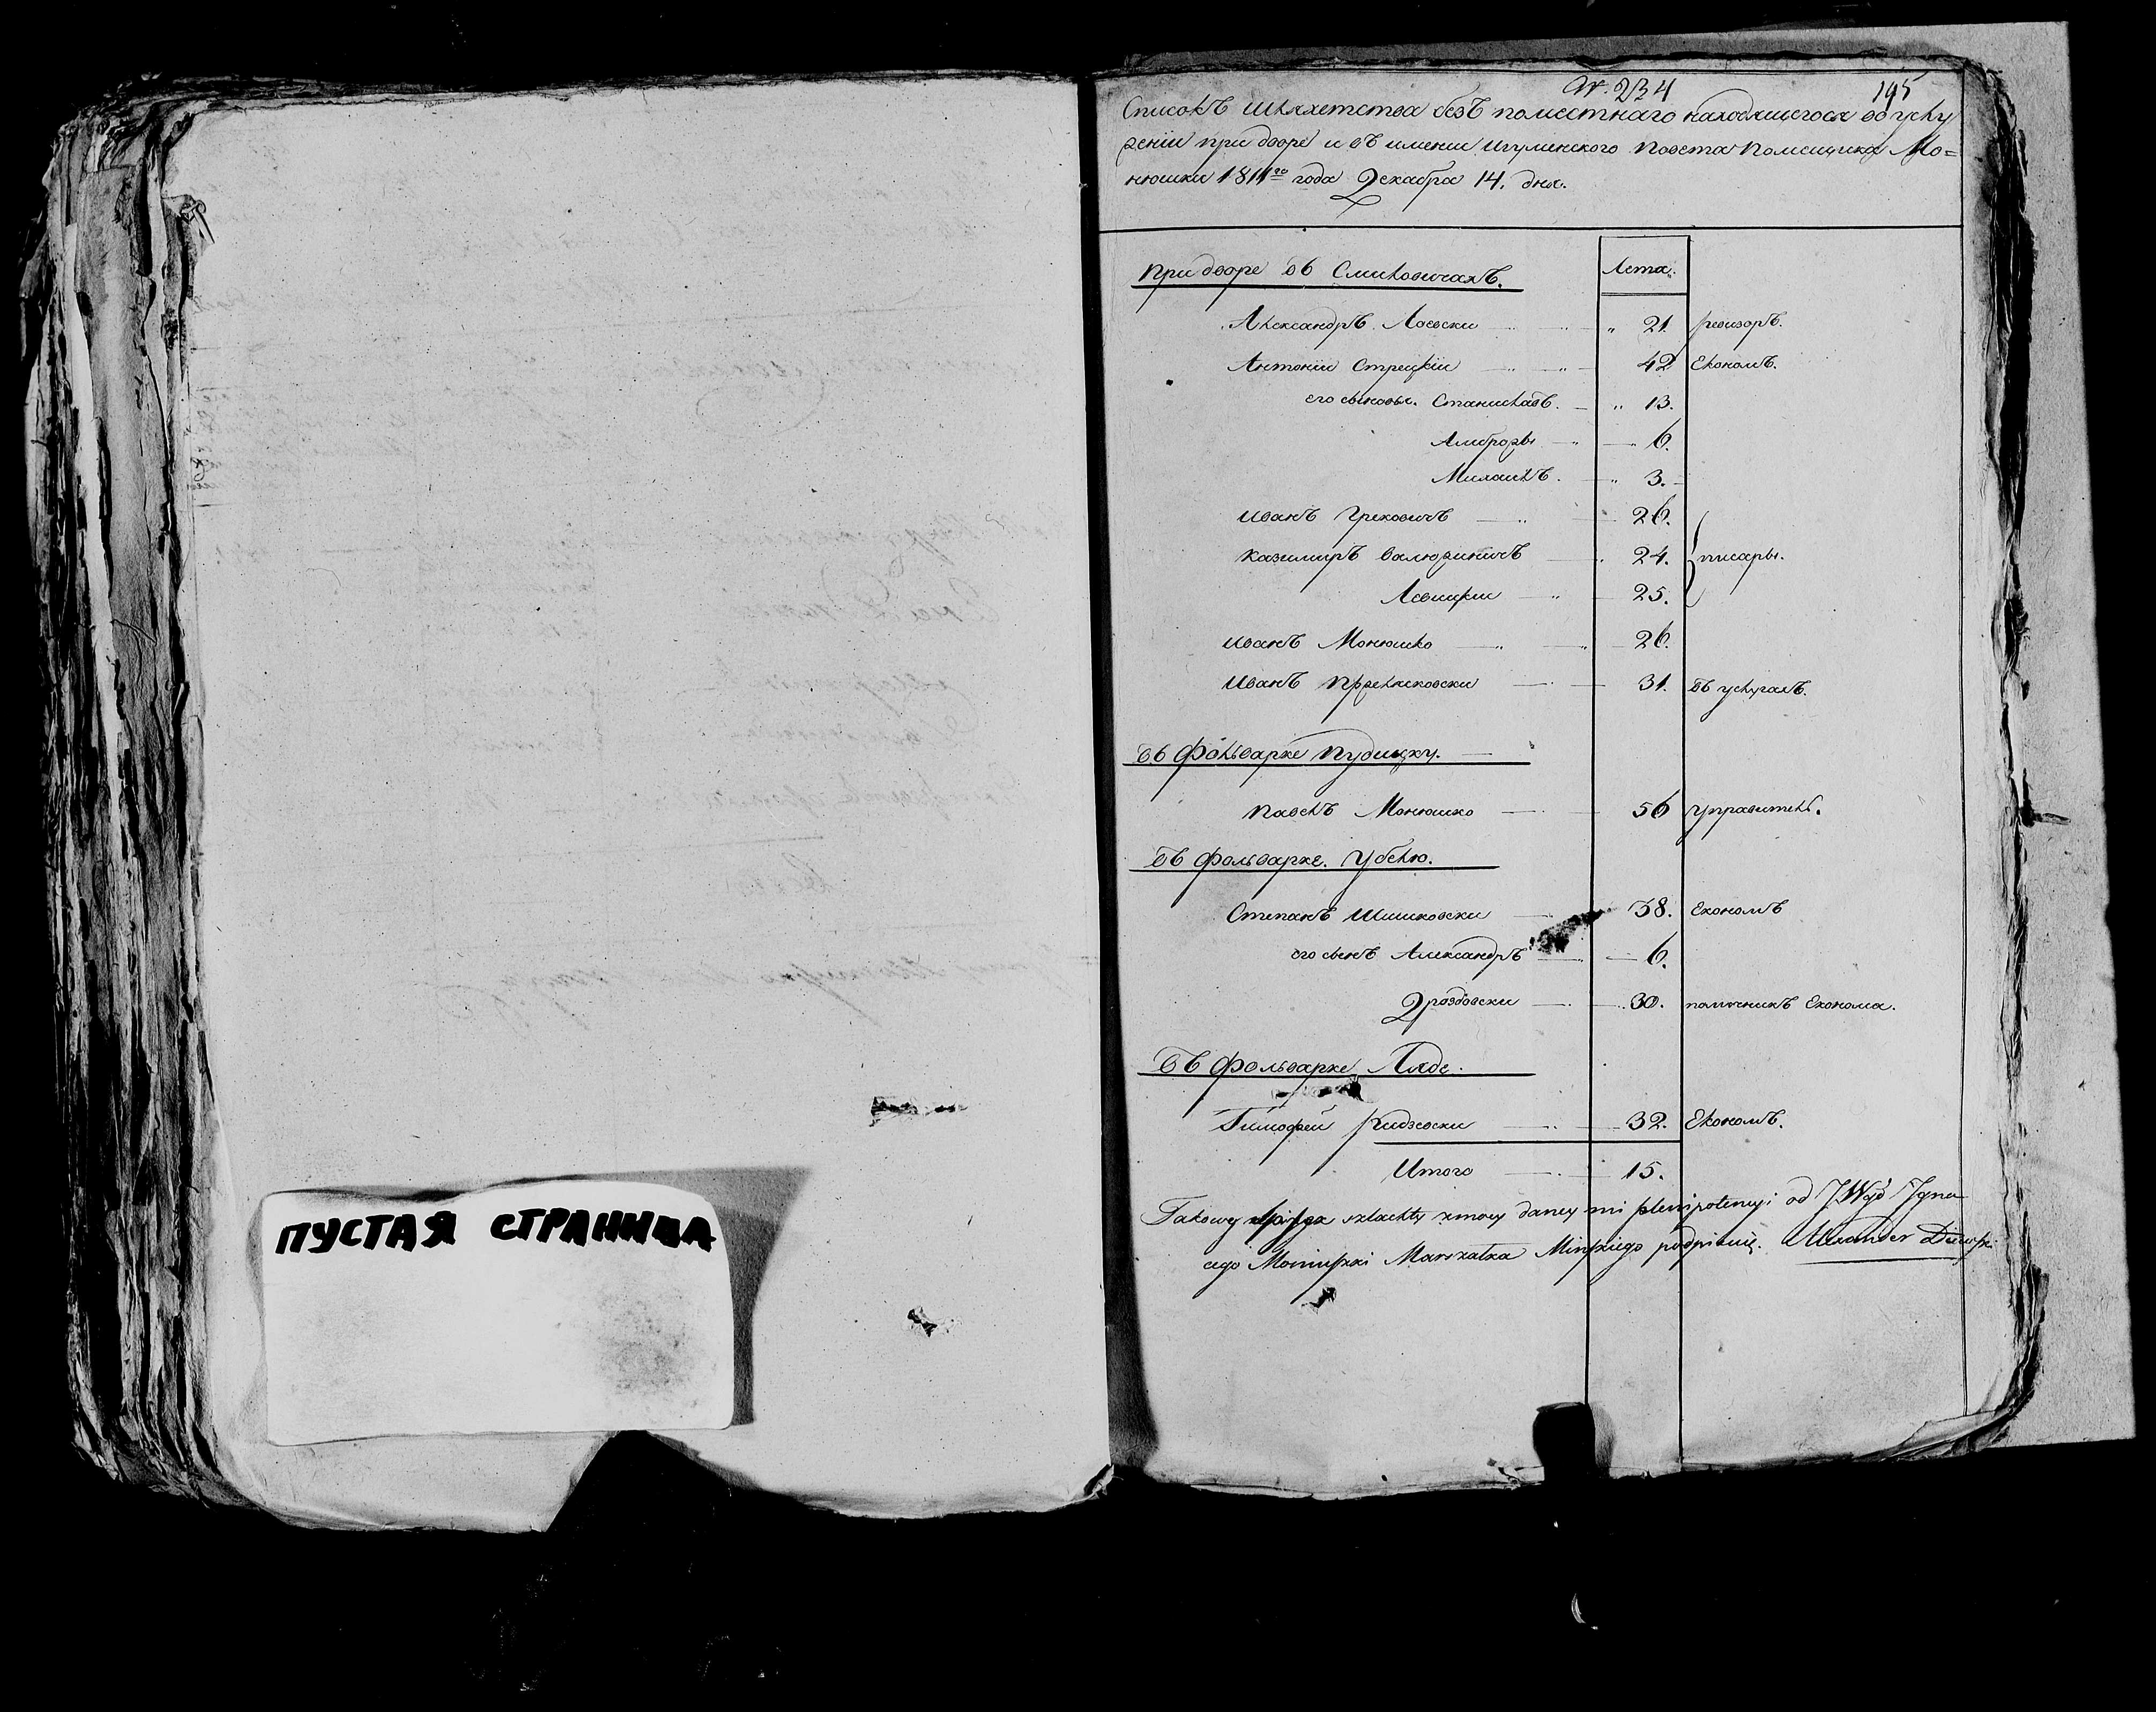 ПУСТАЯ СТРАНИЦА
№. 234
195
Списокъ шляхетства безъ поместнаго находящегося во услу
жении при дворе и въ имении игуменского повета помещика Мо=
нюшки 1811го года Декабра 14. дня.
при дворе въ Смиловичахъ.
Лета.
Александръ Лаевски „ 21. ревизоръ.
Антонии Стрецкии 42 Економъ.
его сыновы. Станиславъ. „ 13.
Амброзы 6.
Михаилъ. „ 3.
Иванъ Грековичъ 26.
Казимиръ Валюжиничъ 24. писары.
Левицки 25.
Иванъ Монюшко 26.
Иванъ 31. въ услугахъ.
въ Фольварке Пудицку.
Павелъ Монюшко 56 управитель.
въ фольварке. Убелю.
Степанъ Шишковски 38. Економъ
его сынъ Александръ 6.
Дроздовски 30. помочникъ Економа.
въ фольварке Ляде.
Тимофеи 32. Економъ.
Итого 15.
Takowy szlachty z mocy daney mi plenipotencyi od JWgo Igna
cego Moniuszki Marszałka Minskiego podpisuię. Alexander